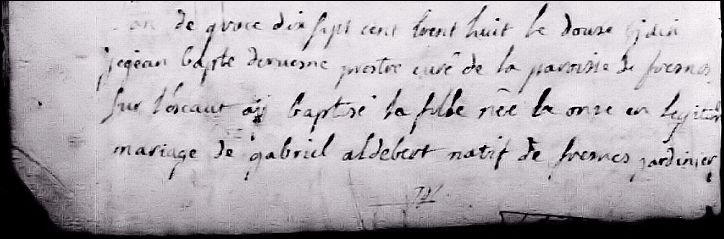 de grace dix sept cent trent huit le douse juin
je jean bapte deruesne prestre curé de la paroisse de fresnes
sur l'escaut aÿ baptisé la fille née le onse en legitime
mariage de gabriel aldebert natif de fresnes jardinier